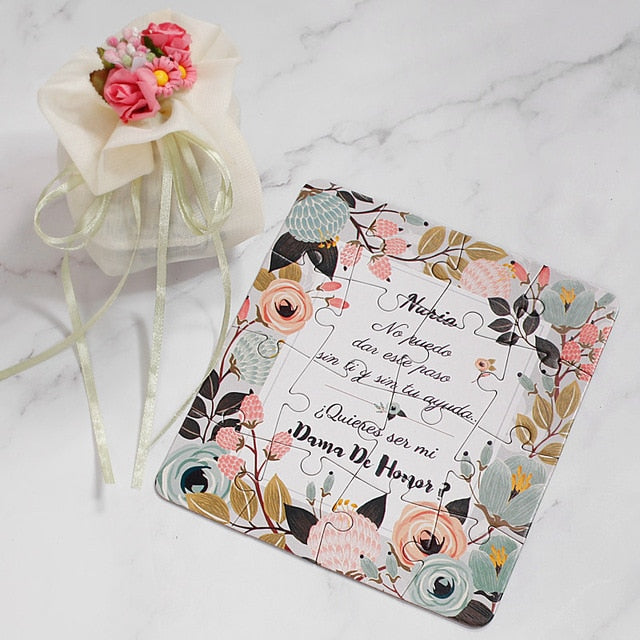 Nuria
No puedo
dar este paso
sin ti y sin tu ayuda...
¿Quieres ser mi
Dama De Honor ?